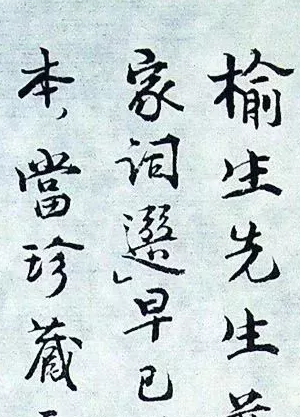 榆生先生
家词選」早已
本，當珍藏